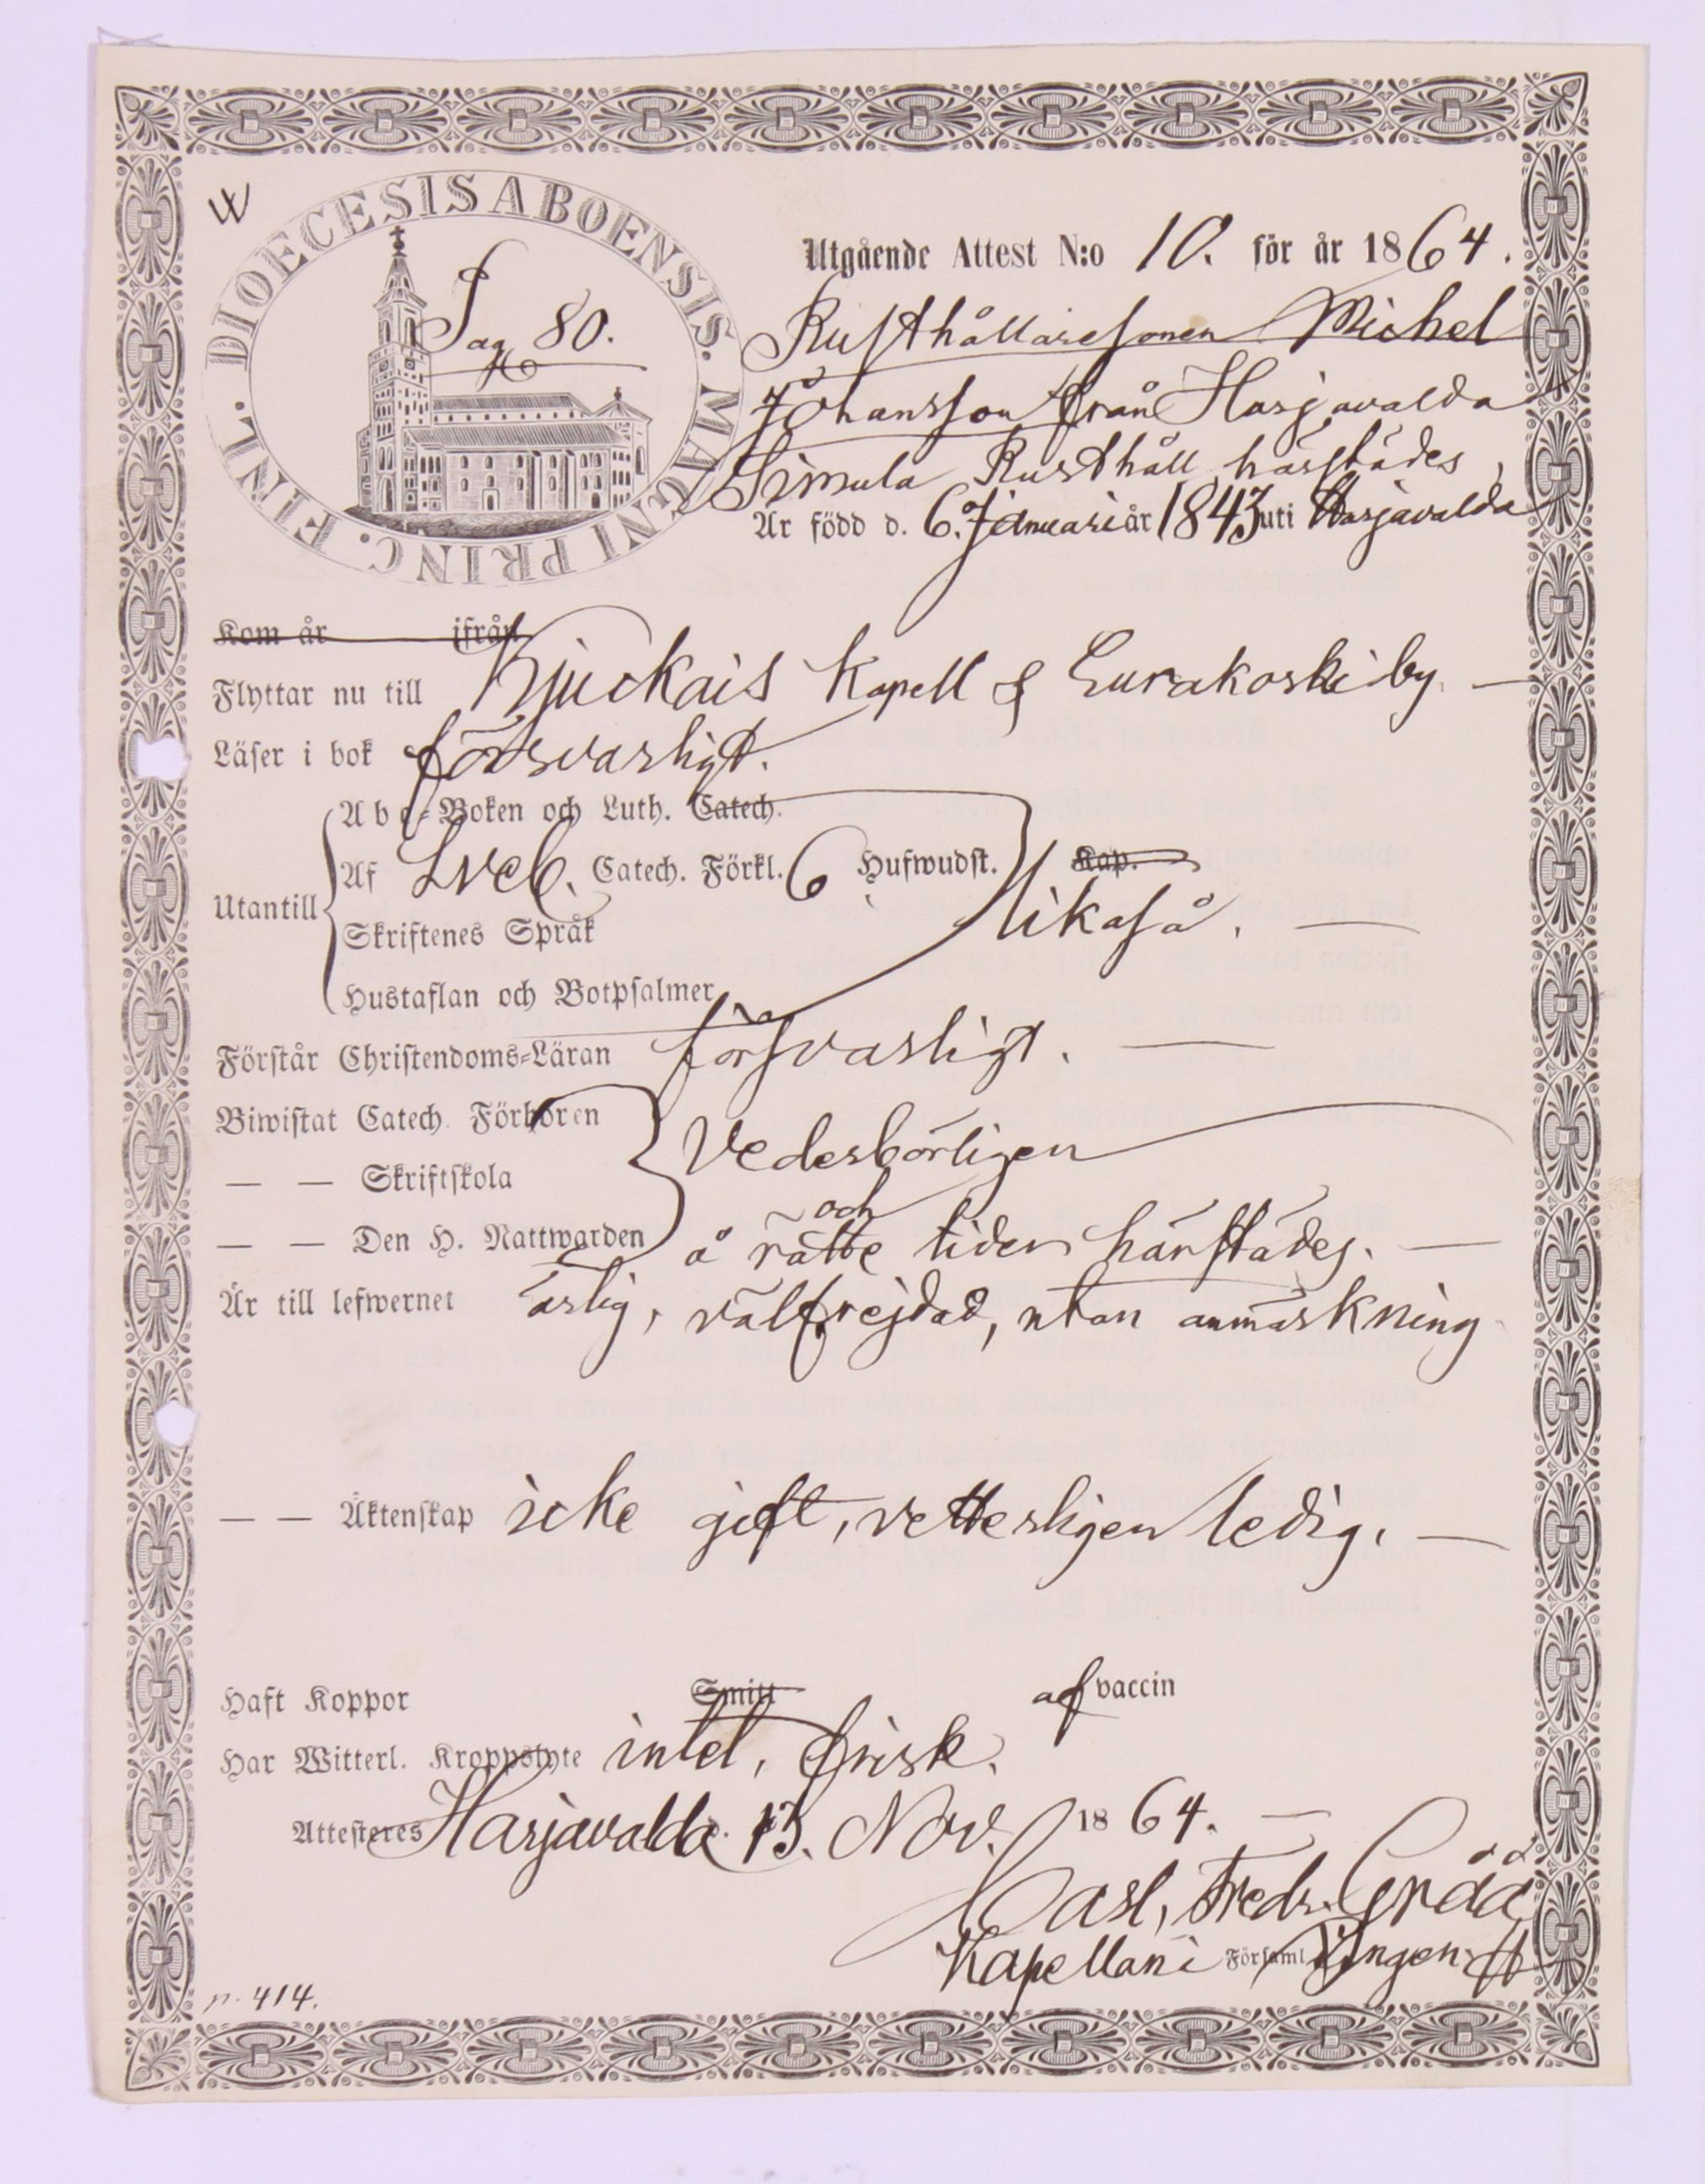 W
DIOECESIS ABOENSIS. MAGNI PRINC. FINL.
Pag 80.
Utgående Attest N:o 10. för år 1864.
Rusthållaresonen Michel
Johansson från Harjavalda
Simula Rusthåll härstädes,
Är född d. 6. Januari år 1843 uti Harjavalda
Kom år ifrån
Flyttar nu till Kjuckais Kapell & Eurakoski by. —
Läser i bok försvarligt.
Abc-Boken och Luth. Catech.
Af Sveb. Catech. Förkl. 6 Hufwudst. Kap.
Utantill likaså. —
Skriftenes Språk
Hustaflan och Botpsalmer
Förstår Christendoms-Läran försvarligt. —
Biwistat Catech. Förhören
Vederbörligen
— — Skriftskola
och
— — Den H. Nattwarden å rätte tider härstädes. —
Är till lefwernet ärlig, välfrejdad, utan anmärkning
— — Äktenskap icke gift, vetterligen ledig. —
Haft Koppor Smitt af vaccin
Har Witterl. Kroppslyte intet, frisk.
Attesteres Harjavalda d. 13. Nov. 1864. —
Carl, Fredr. Gråå
Kapellan i Församlingen
p. 414.